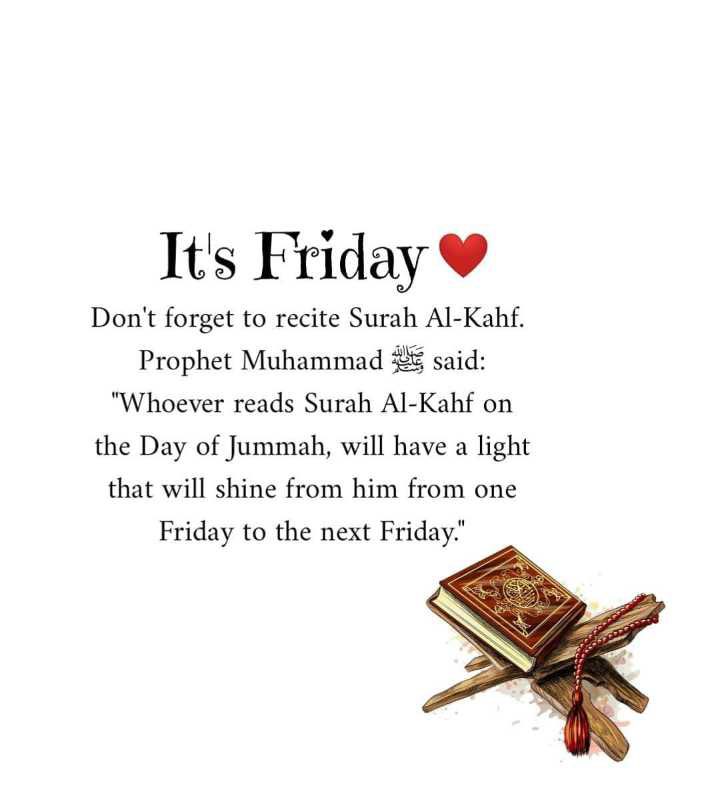 It's Friday ❤️
Don't forget to recite Surah Al-Kahf.
Prophet Muhammad ﷺ said:
"Whoever reads Surah Al-Kahf on
the Day of Jummah, will have a light
that will shine from him from one
Friday to the next Friday."